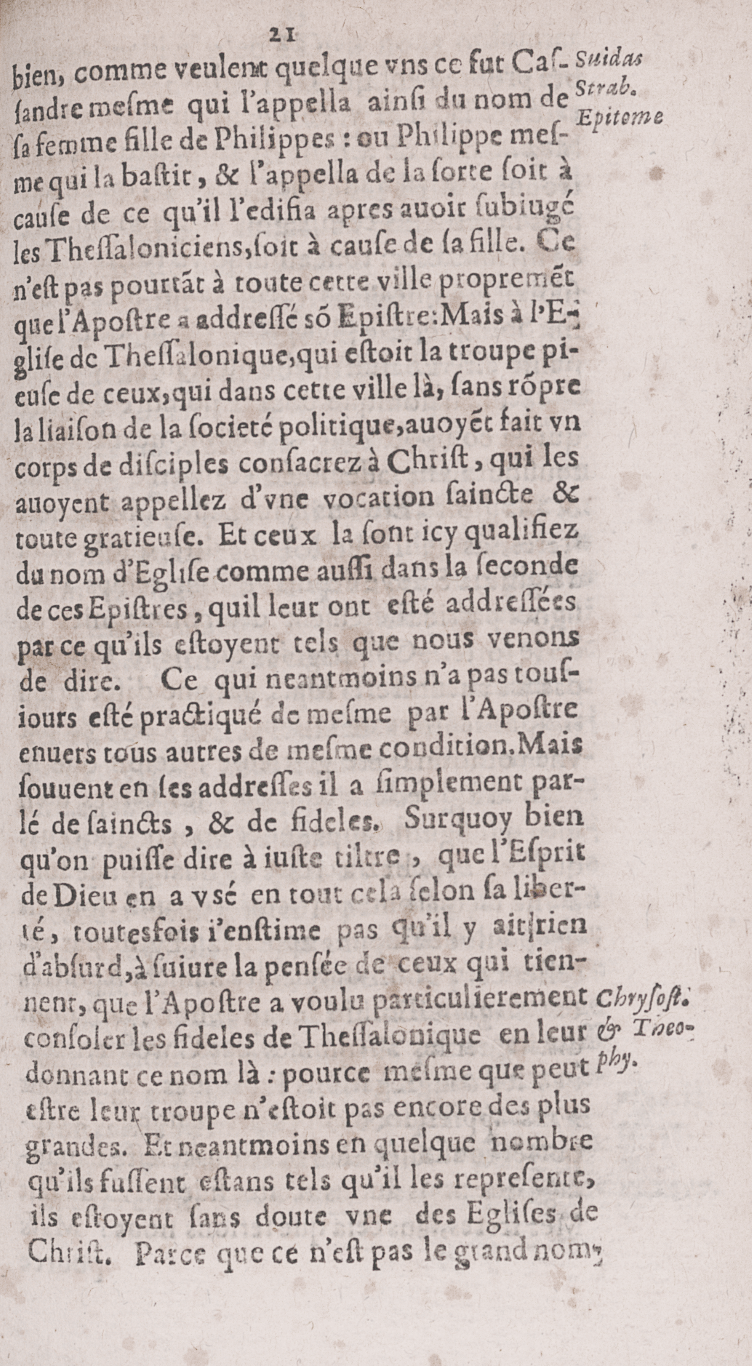 21
bien, comme veulent quelque vns ce fut Caſ- Suidas
ſandre meſme qui l'appella ainſi du nom de Strab.
ſa femme fille de Philippes : ou Philippe meſ- Epitome
me qui la baſtit, & l'appella de la ſorte ſoit à
cauſe de ce qu'il l'edifia apres auoir ſubiugé
les Theſſaloniciens,ſoit à cauſe de ſa fille. Ce
n'eſt pas pourtãt à toute cette ville propremẽt
que l'Apoſtre a addreſſé sõ Epiſtre:Mais à l'E-
gliſe de Theſſalonique,qui eſtoit la troupe pi-
euſe de ceux,qui dans cette ville là, ſans rõpre
la liaiſon de la ſocieté politique,auoyẽt fait vn
corps de diſciples conſacrez à Chriſt, qui les
auoyent appellez d'vne vocation ſaincte &
toute gratieuſe. Et ceux la ſont icy qualifiez
du nom d'Egliſe comme auſſi dans la ſeconde
de ces Epiſtres, quil leur ont eſté addreſſées
par ce qu'ils eſtoyent tels que nous venons
de dire. Ce qui neantmoins n'a pas touſ-
iours eſté practiqué de meſme par l'Apoſtre
enuers tous autres de meſme condition.Mais
ſouuent en ſes addreſſes il a ſimplement par-
lé de ſaincts , & de fideles. Surquoy bien
qu'on puiſſe dire à iuſte tiltre , que l'Eſprit
de Dieu en a vsé en tout cela ſelon ſa liber-
té, toutesfois i'enſtime pas qu'il y ait rien
d'abſurd,à ſuiure la penſée de ceux qui tien-
nent, que l'Apoſtre a voulu particulierement Chryſoſt.
conſoler les fideles de Theſſalonique en leur & Theo-
donnant ce nom là : pource meſme que peut phy.
eſtre leur troupe n'eſtoit pas encore des plus
grandes. Et neantmoins en quelque nombre
qu'ils fuſſent eſtans tels qu'il les repreſente,
ils eſtoyent ſans doute vne des Egliſes de
Chriſt. Parce que ce n'eſt pas le grand nom-